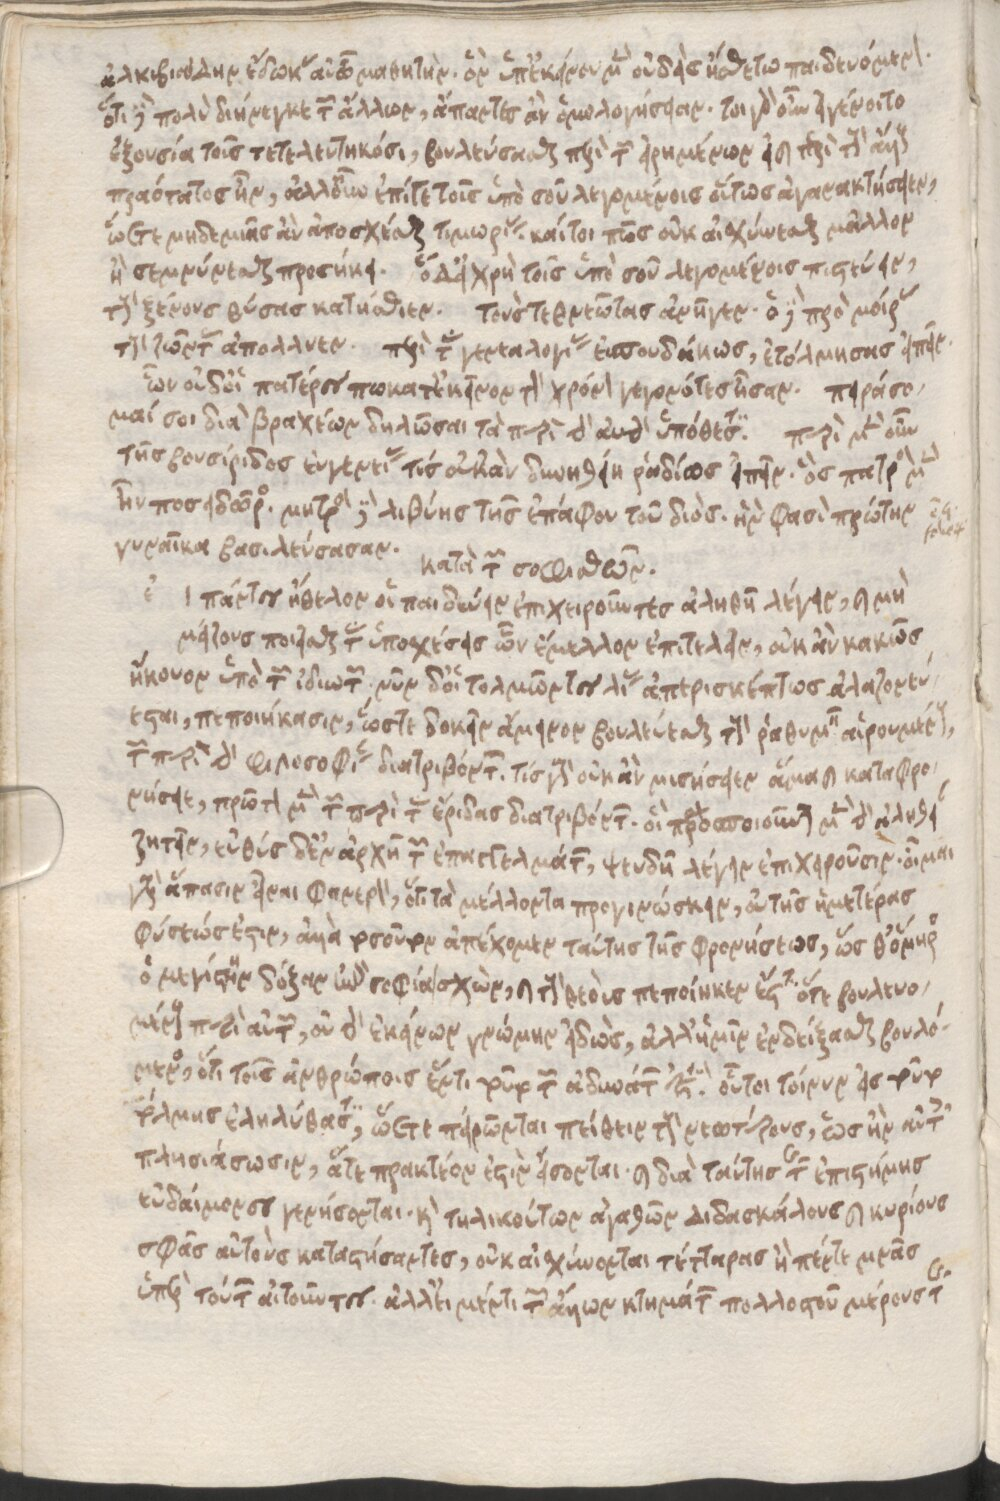 ἀλκιβιάδην ἔδωκας αὐτῷ μαθητὴν. ὃν ὑπ' ἐκείνου μὲν οὐδεὶς ἤσθετο παιδευόμενον.
ὅτι δὲ πολὺ διήνεγκε τῶν ἄλλων, ἅπαντες ἂν ὁμολογήσειαν. τοιγαροῦν εἰ γένοιτο
ἐξουσία τοῖς τετελευτηκόσι, βουλεύσασθαι περὶ τῶν εἰρημένων
πραότατος ἦν, ἀλλ' οὖν ἐπί τε τοῖς ὑπὸ σοῦ λεγομένοις οὕτως ἀγανακτήσειεν,
ὥστε μηδεμιᾶς ἂν ἀποσχέσθαι τιμωρίας. καίτοι πῶς οὐκ αἰσχύνεσθαι μᾶλλον
ἢ σεμνύνεσθαι προσήκει. ὁ δ' εἰ χρὴ τοῖς ὑπὸ σοῦ λεγομένοις πιστεύειν,
τοὺς ξένους θύσας κατήσθιεν. τοὺς τεθνεῶτας ἀνῆγεν. ὁ δὲ πρὸ μοίρας
τοὺς ζῶντας ἀπόλλυεν. περὶ τὰς γενεαλογίας ἐσπουδακὼς, ἐτόλμησας εἰπεῖν.
ὧν οὐδ' οἱ πατέρες πω κατ' ἐκεῖνον τὸν χρόνον γεγονότες ἦσαν. πειράσο-
μαί σοι διὰ βραχέων δηλῶσαι τὰ περὶ τὴν αὐτὴν ὑπόθεσιν. περὶ μὲν οὖν
τῆς βουσίριδος εὐγενείας τίς οὐκ ἂν δυνηθείη ῥᾳδίως εἰπεῖν. ὃς πατρὸς μὲν
ἦν ποσειδῶνος. μητρὸς δὲ λιβύης τῆς ἐπάφου τοῦ διὸς. ἣν φασὶ πρώτην
γυναῖκα βασιλεύσασαν. κατὰ τῶν σοφιστῶν.
εἰ πάντες ἤθελον οἱ παιδεύειν ἐπιχειροῦντες ἀληθῆ λέγειν, καὶ μὴ
μείζους ποιεῖσθαι τὰς ὑποσχέσεις ὧν ἔμελλον ἐπιτελεῖν, οὐκ ἂν κακῶς
ἤκουον ὑπὸ τῶν ἰδιωτῶν. νῦν δ' οἱ τολμῶντες λίαν ἀπερισκέπτως ἀλαζονεύ-
εσθαι, πεποιήκασιν, ὥστε δοκεῖν ἄμεινον βουλεύεσθαι τοὺς ῥαθυμεῖν αἱρουμένους,
τῶν περὶ τὴν φιλοσοφίαν διατριβόντων. τίς γὰρ οὐκ ἂν μισήσειεν ἅμα καὶ καταφρο-
νήσειε, πρῶτον μὲν τῶν περὶ τὰς ἔριδας διατριβόντων. οἳ προσποιοῦνται μὲν τὴν ἀλήθειαν
ζητεῖν, εὐθὺς δ' ἐν ἀρχῇ τῶν ἐπαγγελμάτων, ψευδῆ λέγειν ἐπιχειροῦσιν. οἶμαι
γὰρ ἅπασιν εἶναι φανερὸν, ὅτι τὰ μέλλοντα προγινώσκειν, οὐ τῆς ἡμετέρας
φύσεώς ἐστιν, ἀλλὰ τοσοῦτον ἀπέχομεν ταύτης τῆς φρονήσεως, ὥσθ' ὅμηρος
ὁ μεγίστην δόξαν ἐπὶ σοφίᾳ σχὼν, καὶ τοὺς θεοὺς πεποίηκεν ἔστιν ὅτε βουλευο-
μένους περὶ αὐτῶν, οὐ τὴν ἐκείνων γνώμην εἰδὼς, ἀλλ' ἡμῖν ἐνδείξασθαι βουλό-
μενος, ὅτι τοῖς ἀνθρώποις ἓν τι τοῦτο τῶν ἀδυνάτων ἐστίν. οὗτοι τοίνυν εἰς τοῦτο
τόλμης ἐληλύθασιν, ὥστε πειρῶνται πείθειν τοὺς νεωτέρους, ὡς ἢν αὐτοῖς
πλησιάσωσιν, ἅ τε πρακτέον ἐστὶν εἴσονται. καὶ διὰ ταύτης τῆς ἐπιστήμης
εὐδαίμονες γενήσονται. καὶ τηλικούτων ἀγαθῶν διδασκάλους καὶ κυρίους
σφᾶς αὐτοὺς καταστήσαντες, οὐκ αἰσχύνονται τέτταρας ἢ πέντε μνᾶς
ὑπὲρ τούτων αἰτοῦντες. ἀλλ' εἰ μέν τι τῶν ἄλλων κτημάτων πολλοστοῦ μέρους τῆς